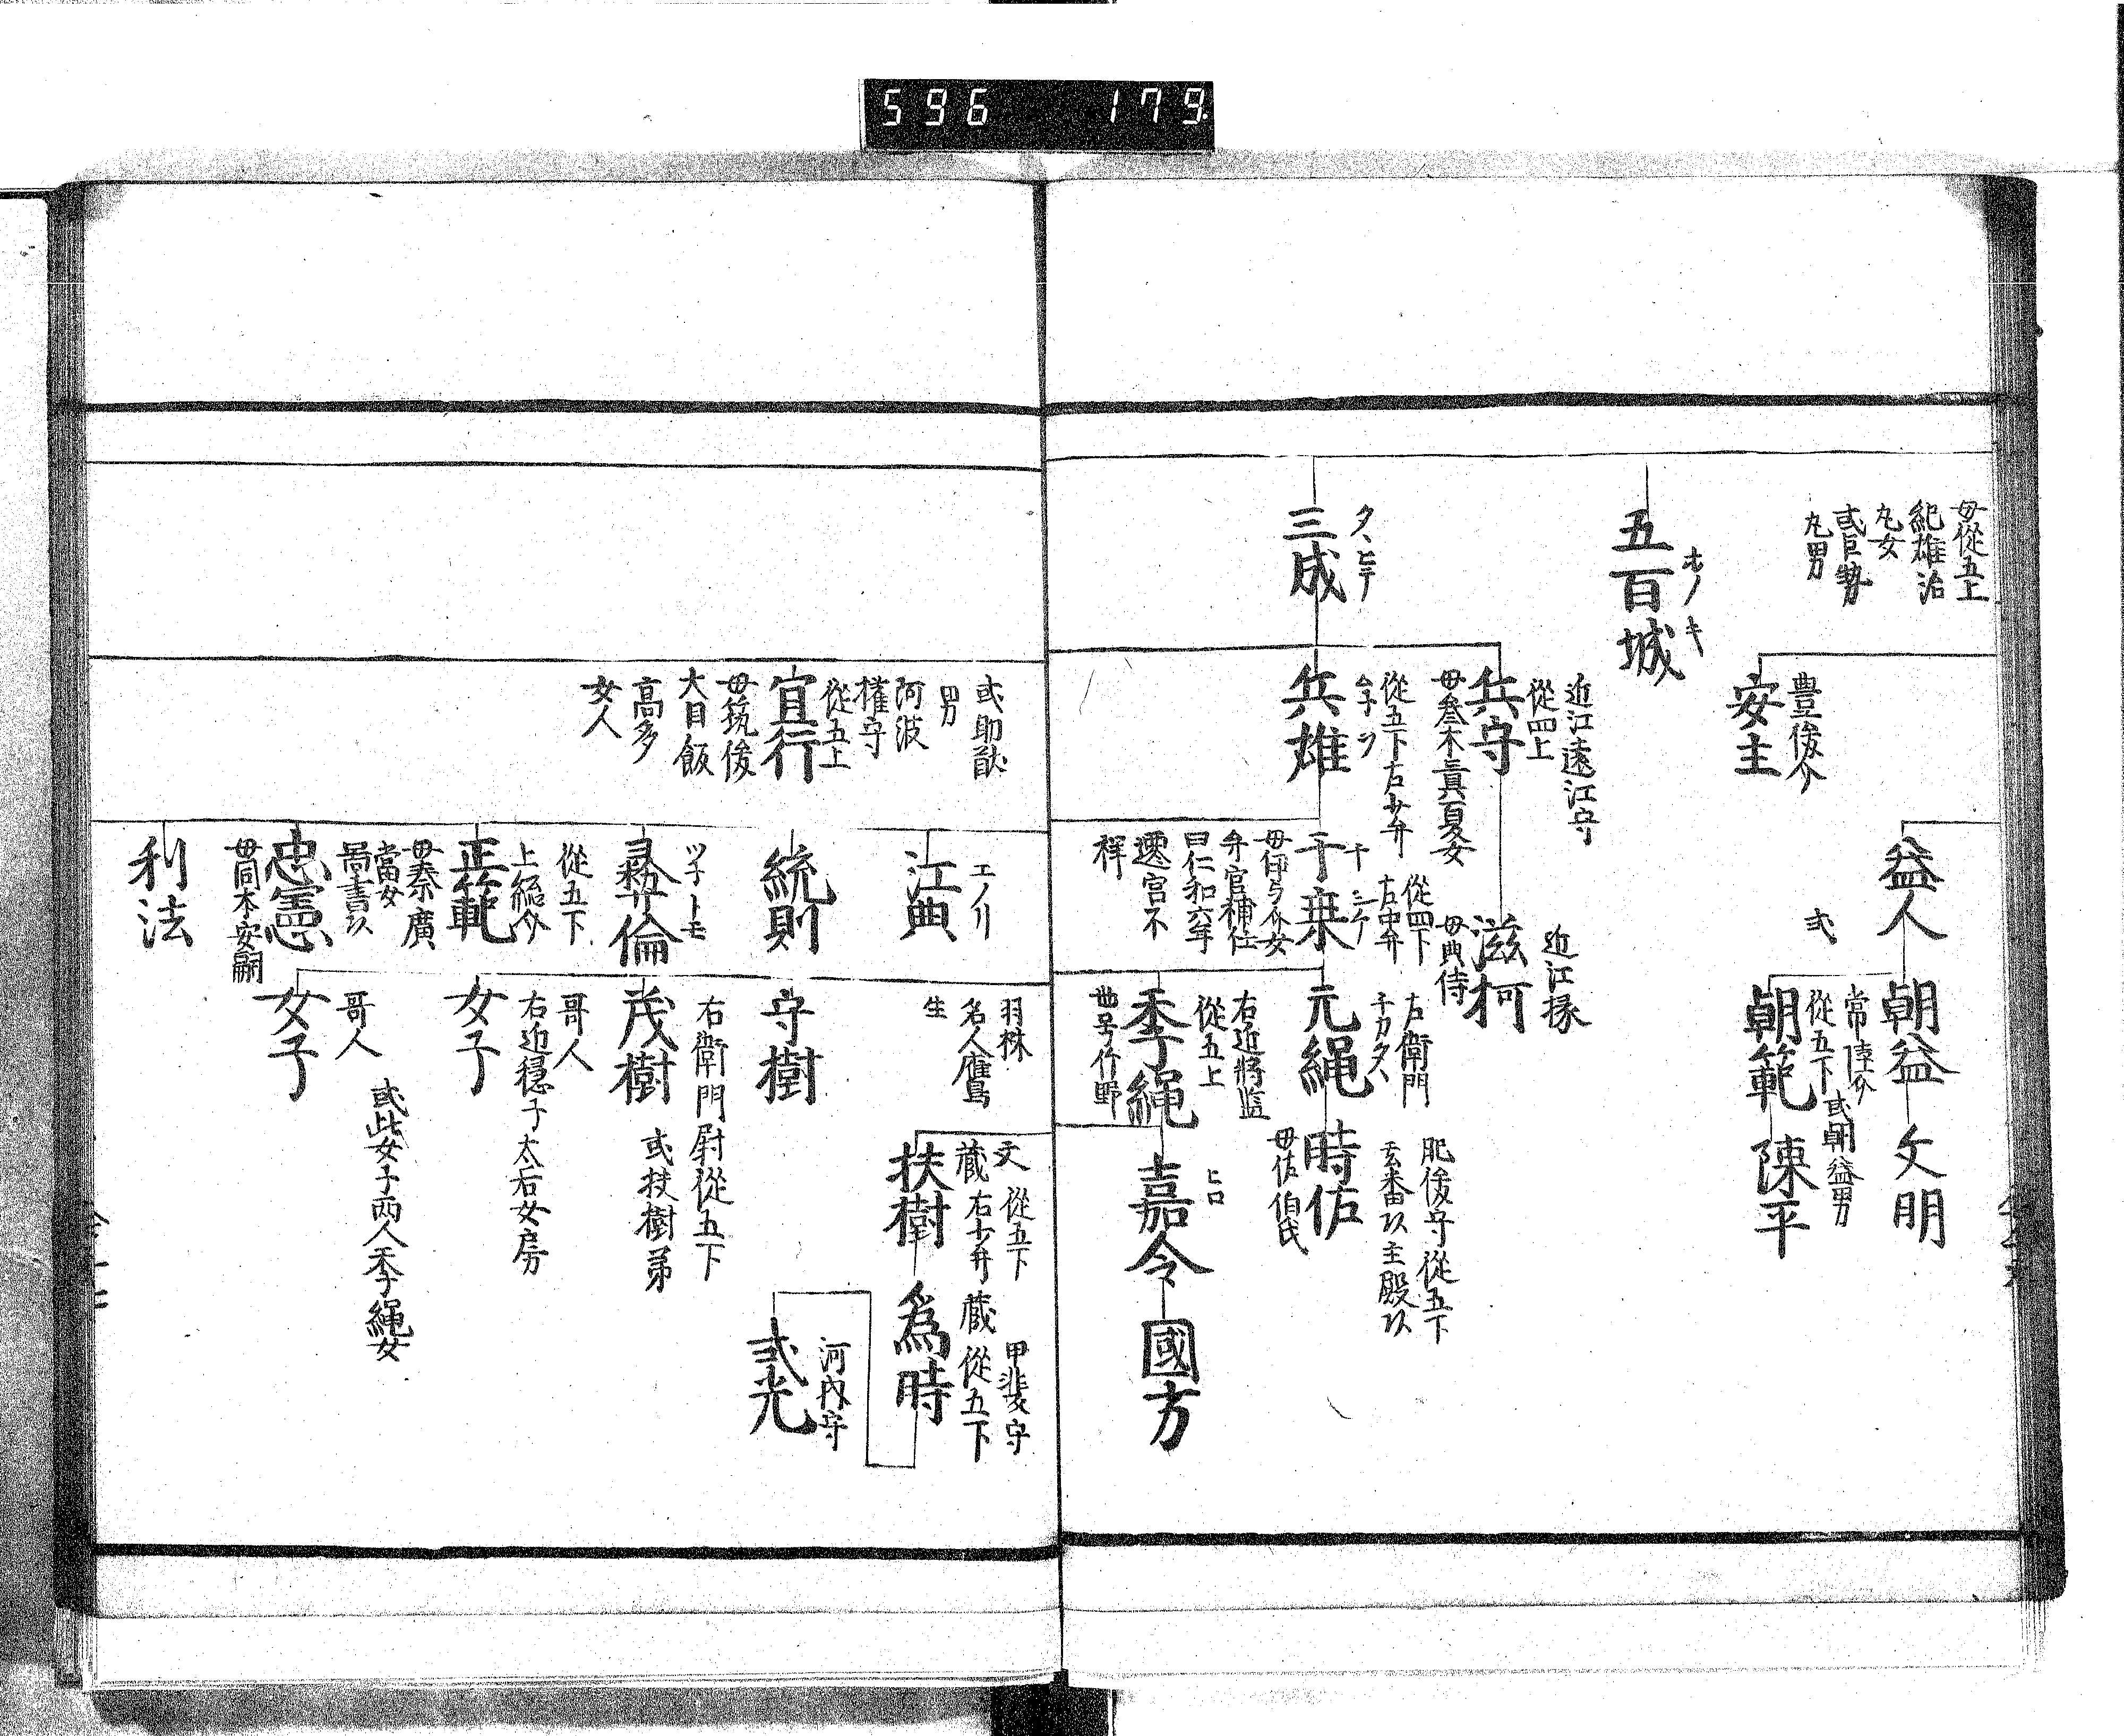 596 179
母從五上
紀雄治
丸女
或巨勢
丸男
益人
朝益
文明
豊後介
安主
常陸介
從五下
或朝益男
朝範
陳平
五百城
近江遠江守
從四上
兵守
母参木真夏女
近江掾
滋柯
母典侍
三成
兵雄
從五下右少弁
從四下
右中弁
千乗
母伊与介女
弁官補任
曰仁和六年
遷宮不
左衛門
千カタ
元縄
肥後守從五下
玄番以主殿以
時佐
母佐伯氏
右近將監
從五上
季縄
世号竹野
ヒロ
嘉令
國方
羽林
名人鷹
生
從五下
蔵右少弁
扶樹
甲斐守
蔵從五下
為時
河内守
式光
或助猷
男
阿波
權守
從五上
宜行
母筑後
大目飯
高多
女人
エノリ
江典
統則
守樹
ツ子トモ
彜倫
右衛門尉從五下
或扶樹弟
茂樹
從五下
上総介
正範
哥人
右近穏子太后女房
女子
母秦廣
當女
啚書以
忠憲
哥人
或此女子两人季縄女
女子
母同本安嗣
利法